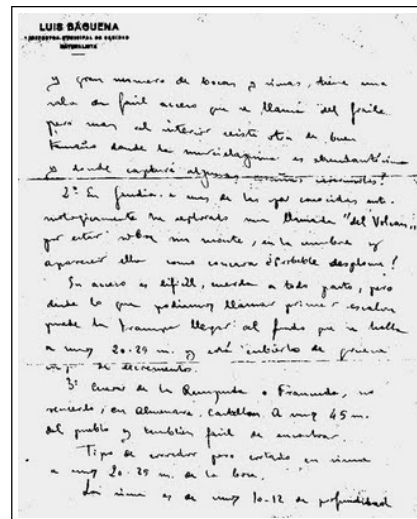 LUIS BÁGUENA
INSPECTOR MUNICIPAL DE SANIDAD
NATURALISTA
y gran numero de bocas y simas, tiene una
sala de fácil acceso que se llama "del fraile
pero mas al interior existe otra de buen
tamaño donde la murcielaguina es abundantísima
y donde capturé algunas
2º En Gandia a mas de las ya conocidas ento-
mologicamente he explorado una llamada "del Volcan",
por estar sobre un monte, en la umbria y
aparecer ella como concava ¿Posible desplome?
Su acceso es dificil, rueda a todo pasto, pero
desde lo que podiamos llamar primer escalon
puede la trampa llegar al fondo que se halla
a unos 20-25 m. y está cubierto de
de excrementos.
3º Cueva de la o, no
recuerdo, en Almenara, Castellon. A unos 45 m.
del pueblo y tambien facil de encontrar.
Tipo de corredor pero cortado en sima
a unos 20-25 m. de la boca.
La sima es de unos 10-12 de profundidad